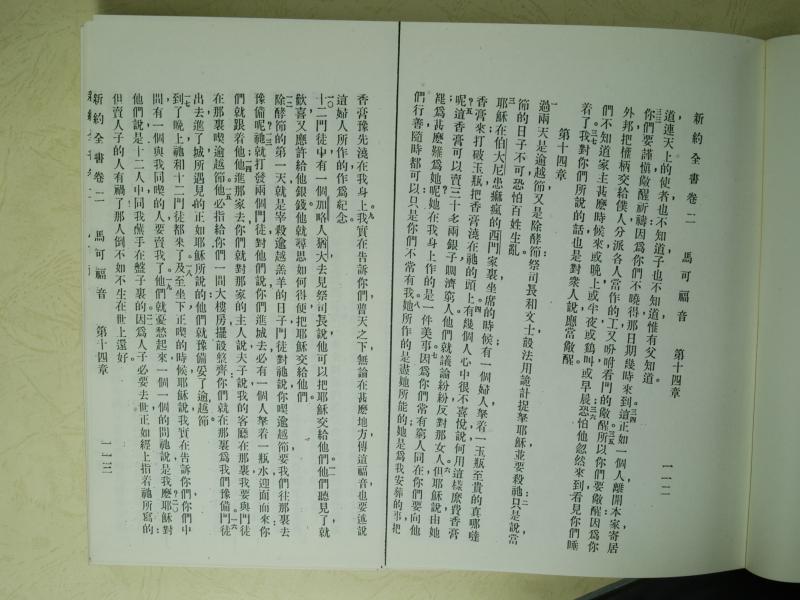 新約全書卷二 馬可福音 第十四章 一一二
道連天上的使者也不知道子也不知道惟有父知道
三三你們要謹慎儆醒祈禱因爲你們不曉得那日期幾時來到三四這正如一個人離開本家寄居
外邦把權柄交給僕人分派各人當作的工又吩咐看門的儆醒三五所以你們要儆醒因爲你
們不知道家主甚麽時候來或晚上或半夜或鷄叫或早晨三六恐怕他忽然來到看見你們睡
着了三七我對你們所說的話也是對衆人說應當儆醒
第十四章
一過兩天是逾越節又是除酵節祭司長和文士設法用詭計捉拏耶穌並要殺祂二只是說當
節的日子不可恐怕百姓生亂
三耶穌在伯大尼患痲瘋的西門家裏坐席的時候有一個婦人拏着一玉瓶至貴的眞哪噠
香膏來打破玉瓶把香膏澆在祂的頭上四有幾個人心中很不喜悅說何用這樣縻費香膏
呢五這香膏可以賣三十多兩銀子賙濟窮人他們就議論紛紛反對那女人六但耶穌說由她
罷爲甚麽難爲她呢她在我身上作的是一件美事七因爲你們常有窮人同在你們要向他
們行善隨時都可以只是你們不常有我八她所作的是盡她所能的她是爲我安葬的事把
香膏豫先澆在我身上九我實在告訴你們普天之下無論在甚麽地方傳這福音也要述說
這婦人所作的作爲紀念
一〇十二門徒中有一個加略人猶大去見祭司長說他可以把耶穌交給他們一一他們聽見了就
歡喜又應許給他銀錢他就尋思如何得便把耶穌交給他們
一二除酵節的第一天就是宰殺逾越羔羊的日子門徒對祂說你喫逾越節要我們往那裏去
豫備呢一三祂就打發兩個門徒對他們說你們進城去必有一個人拏着一瓶水迎面而來你
們就跟着他一四他進那家去你們就對那家的主人說夫子說我的客廳在那裏我要與門徒
在那裏喫逾越節一五他必指給你們一間大樓房擺設整齊你們就在那裏爲我們豫備一六門徒
出去進了城所遇見的正如耶穌所說的他們就豫備妥了逾越節
一七到了晚上祂和十二門徒都來了一八及至坐下正喫的時候耶穌說我實在告訴你們你們中
間有一個與我同喫的人要賣我了一九他們就憂愁起來一個一個的問祂說是我麽二〇耶穌對
他們說是十二人中同我蘸手在盤子裏的二一因爲人子必要去世正如經上指着祂所寫的
但賣人子的人有禍了那人倒不如不生在世上還好
新約全書卷二 馬可福音 第十四章 一一三